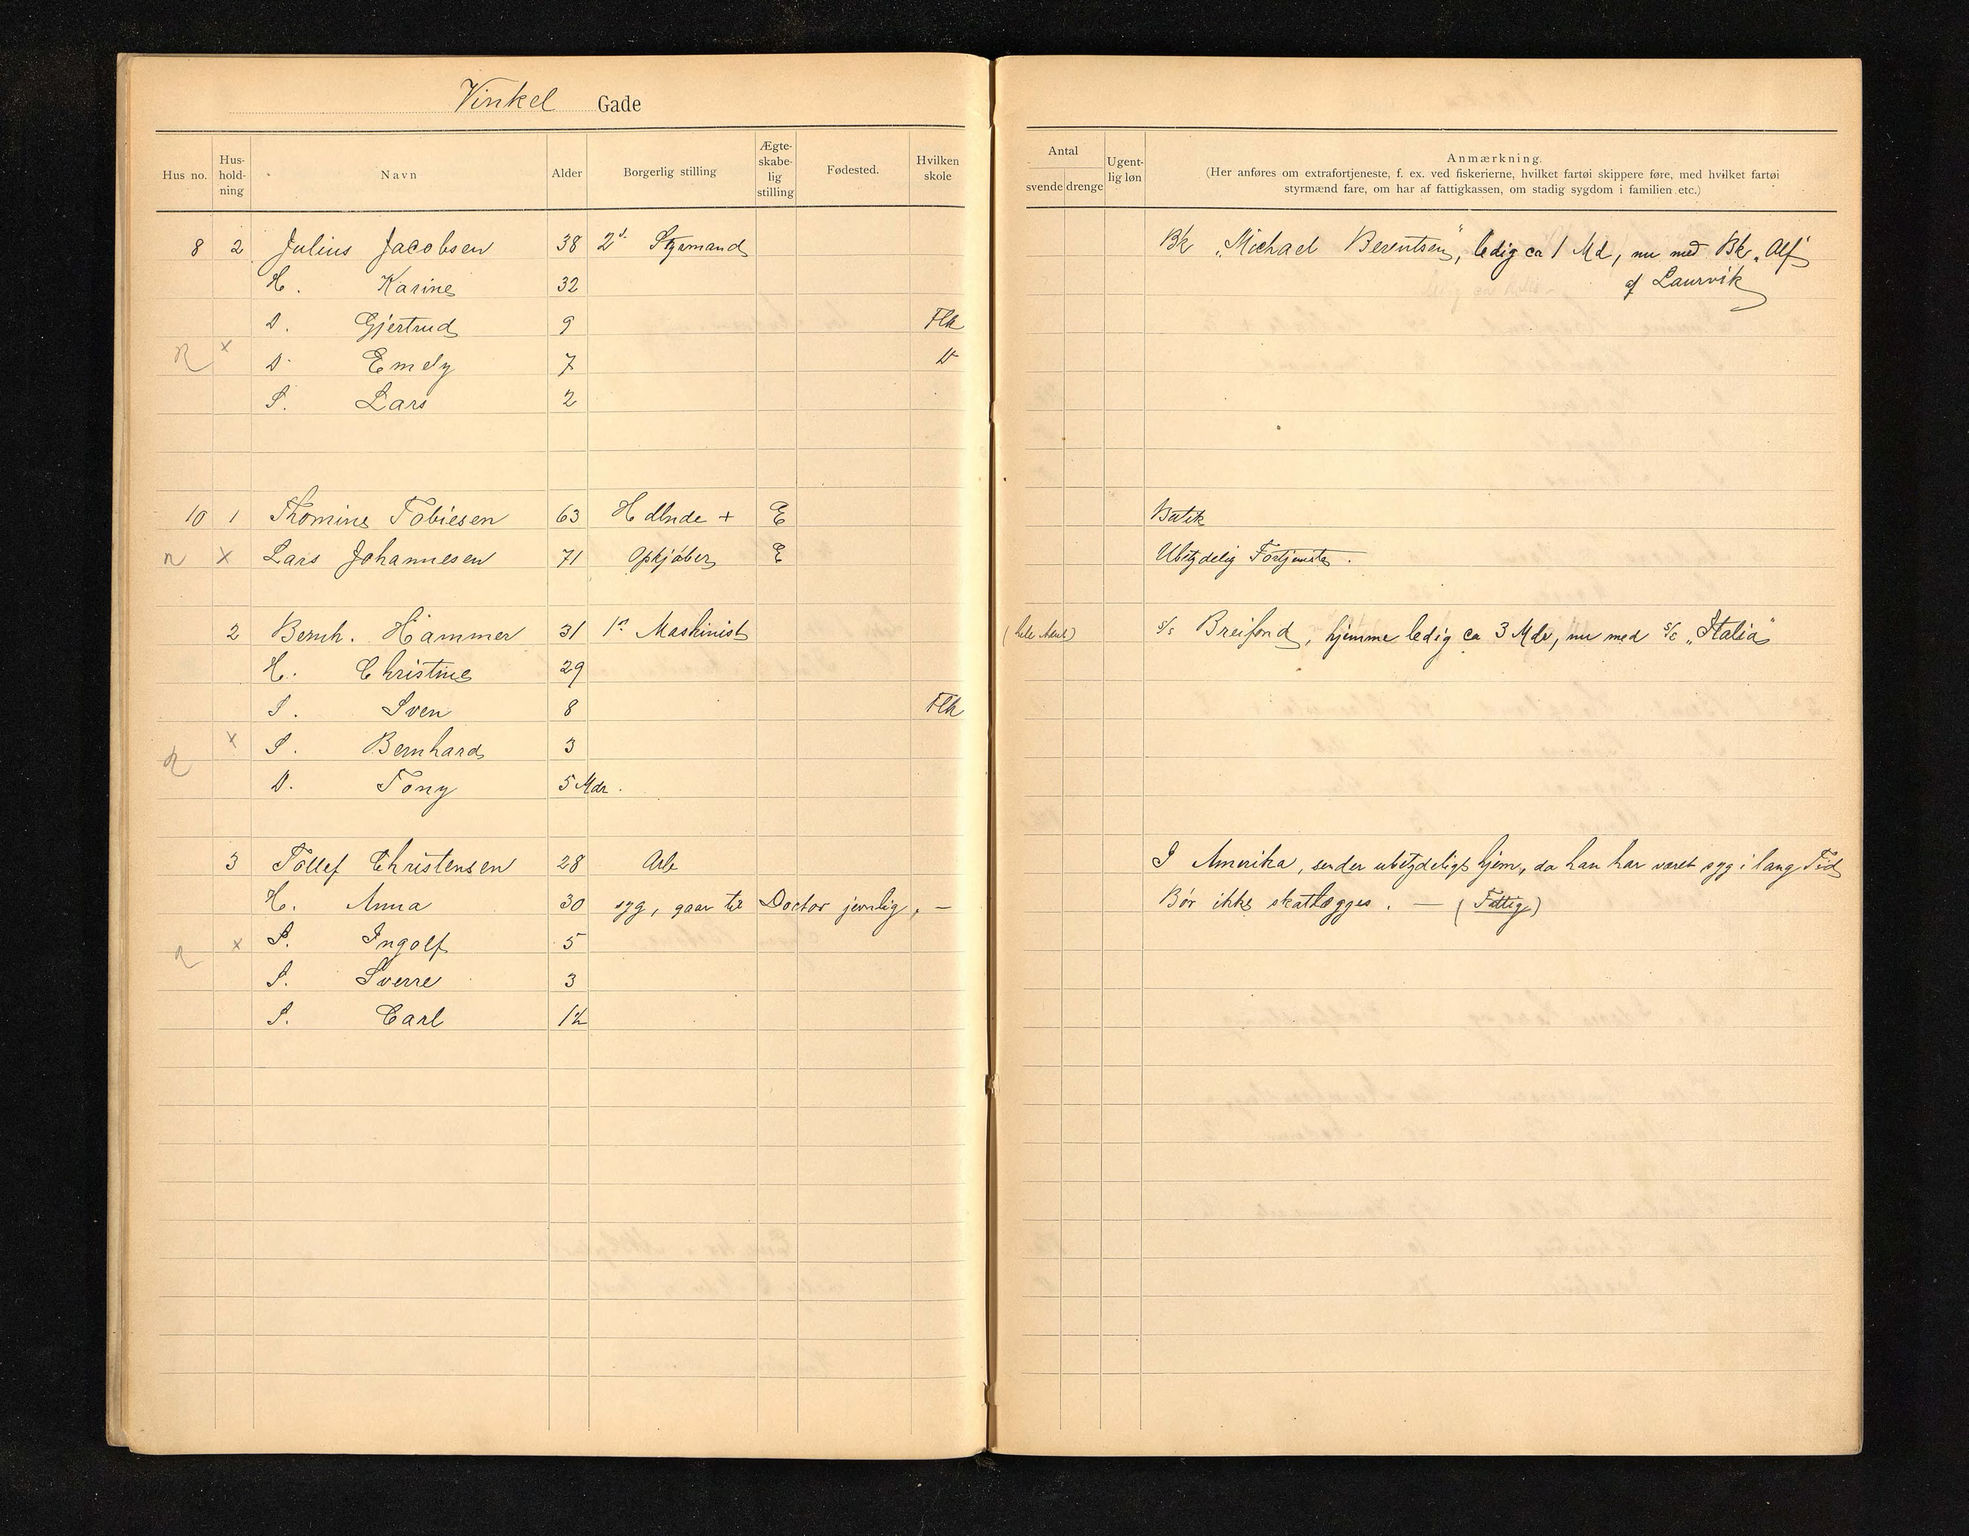 Vinkel Gade
Hus no. Hus-hold-ning Navn Alder Borgerlig stilling Ægte-skabe-lig stilling Fødested. Hvilken skole
Antal svende drenge Ugent-lig løn Anmærkning.
(Her anføres om extrafortjeneste, f. ex. ved fiskerierne, hvilket fartøi skippere føre, med hvilket fartøi
styrmænd fare, om har af fattigkassen, om stadig sygdom i familien etc.)
8 2 Julius Jacobsen 38 2d Styrmand Bk „Michael Berentsen", ledig ca 1 Md, nu med Bk „Alf"
af Laurvik
H. Karine 32
D. Gjertrud 9 Flk
x D. Emely 7 D
S. Lars 2
10 1 Thomine Tobiesen 63 Hdlnde + E Butik
x Lars Johannesen 71 Opkjøber E Ubetydelig Fortjeneste.
2 Bernh. Hammer 31 1st Maskinist s/s Breifond, hjemme ledig ca 3 Mdr, nu med s/s „Italia"
H. Christine 29
S. Sven 8 Flk
x S. Bernhard 3
D. Tony 5 Mdr.
3 Tollef Christensen 28 Arb I Amerika, sender ubetydeligt hjem, da han har været syg i lang Tid
H. Anna 30 syg, gaar til Doctor jevnlig. — Bør ikke skatlægges. — (Fattig)
x S. Ingolf 5
S. Sverre 3
S. Carl 1½